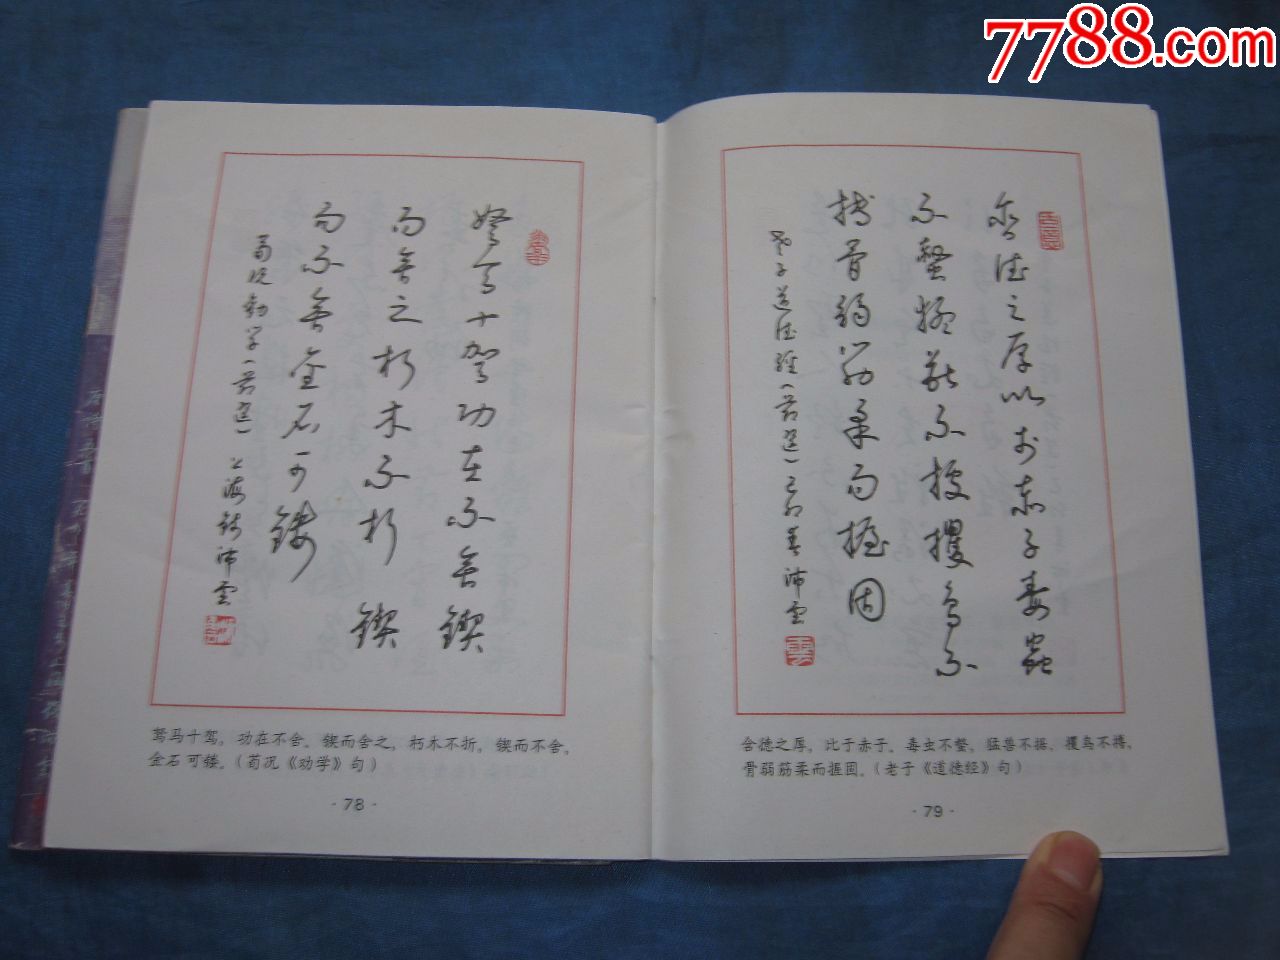 7788.com
驽马十驾功在不舍锲
而舍之朽木不折锲
而不舍金石可镂
荀况劝学(节选)上海钱沛云
驽马十驾，功在不舍。锲而舍之，朽木不折，锲而不舍，
金石可镂。(荀况《劝学》句)
- 78 -
含德之厚以于赤子毒虫
不螫猛兽不据攫鸟不
搏骨弱筋柔而握固
老子道德经(节选)己卯春沛云
含德之厚，比于赤子。毒虫不螫，猛兽不据，攫鸟不搏，
骨弱筋柔而握固。(老子《道德经》句)
- 79 -